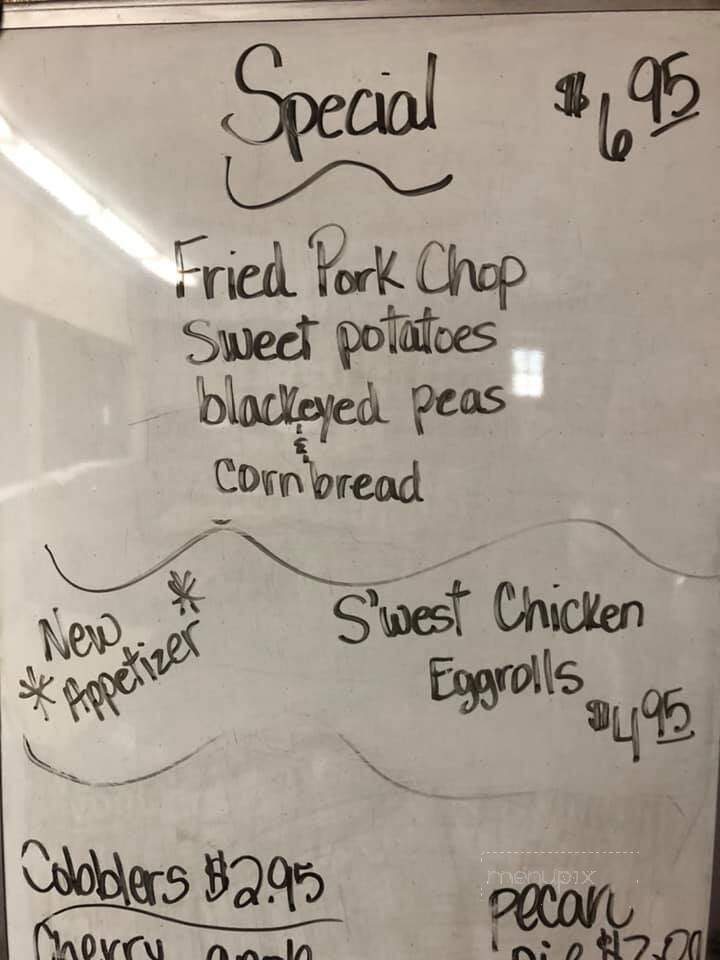 Special $6.95
Fried Pork Chop
Sweet potatoes
blackeyed peas
&
Cornbread
*New Appetizer*
S'west Chicken
Eggrolls
$4.95
Cobblers $2.95
Cherry
menupix
pecan
pie